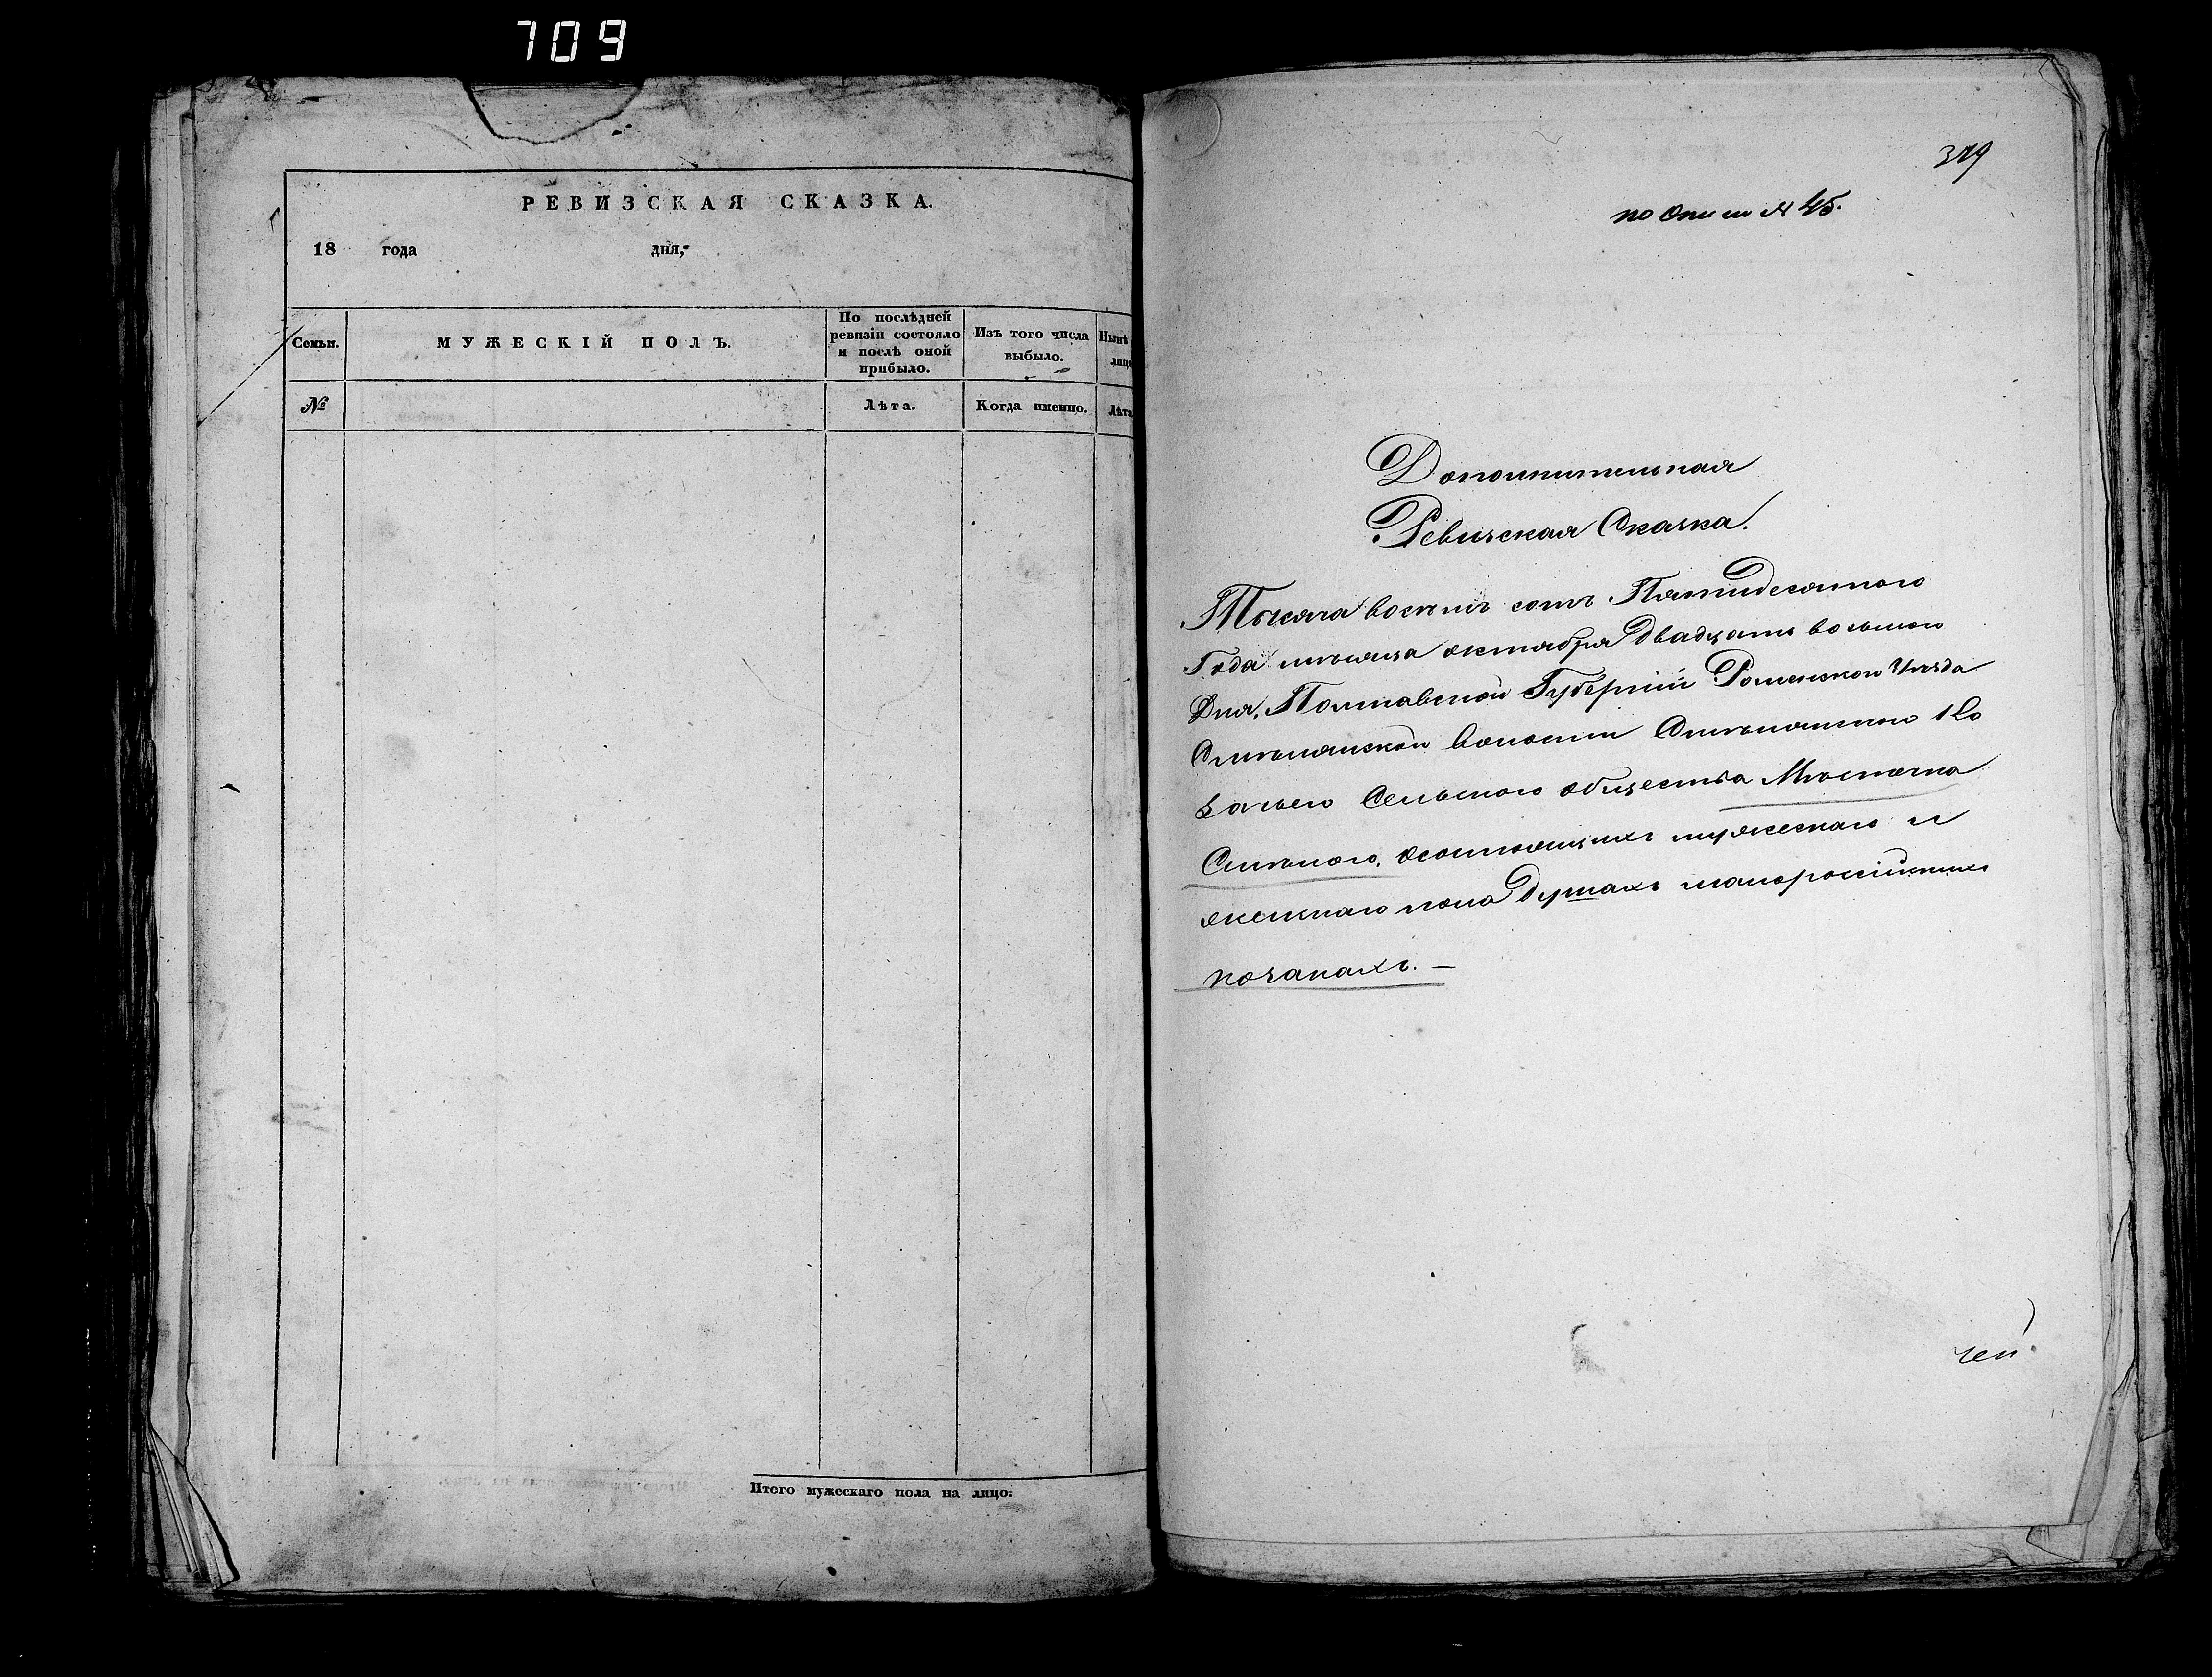 709
РЕВИЗСКАЯ СКАЗКА.
18 года дня,
Семьи.
МУЖЕСКІЙ ПОЛЪ.
По послѣдней
ревизіи состояло
и послѣ оной
прибыло.
Изъ того числа
выбыло.
Нынѣ
лицо
№
Лѣта.
Когда именно.
Лѣта
Итого мужескаго пола на лицо:
379
по Описи № 45.
Дополнительная
Ревизская Сказка.
Тысяча восемь сотъ Пятидесятого
Года мѣсяца октября двадцать восьмого
Дня, Полтавской Губерніи Роменского Уѣзда
Смѣлянской волости Смѣлянского 1го
Сельского общества Мѣстечка
Смѣлого, осостоящихъ мужескаго и
женскаго пола Душахъ малороссійскихъ
козакахъ. —